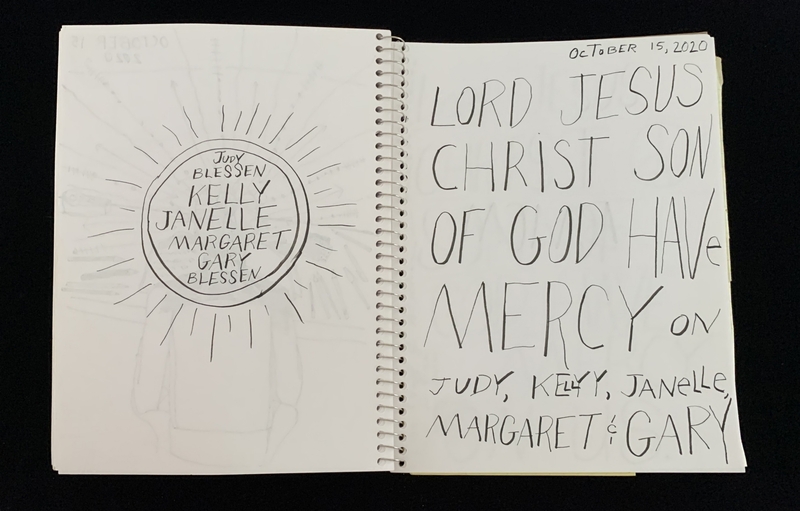 JUDY
BLESSEN
KELLY
JANELLE
MARGARET
GARY
BLESSEN
OCTOBER 15, 2020
LORD JESUS
CHRIST SON
OF GOD HAVe
MERCY ON
JUDY, KELLY, JANeLLe,
MARGARET & GARY
OCTOBER 15
2020